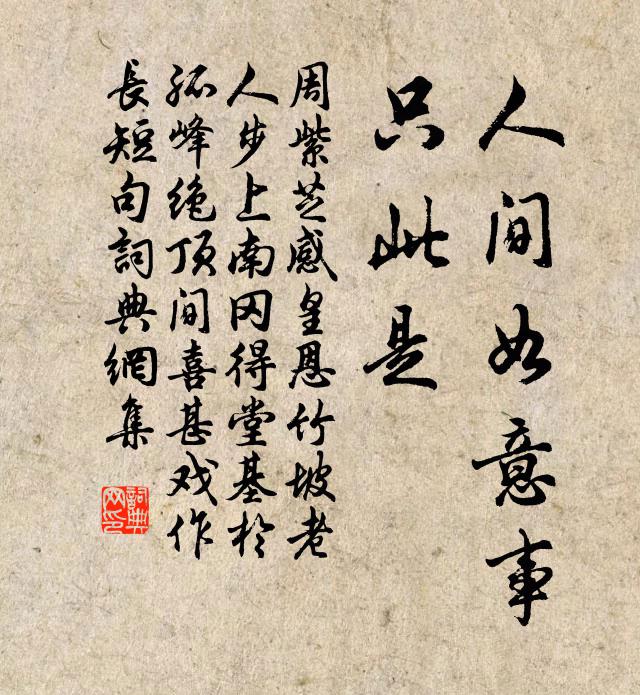 人间如意事
只此是
周紫芝感皇恩竹坡老
人步上南冈得堂基於
孤峰绝顶间喜甚戏作
長短句詞典網集
詞典
网印